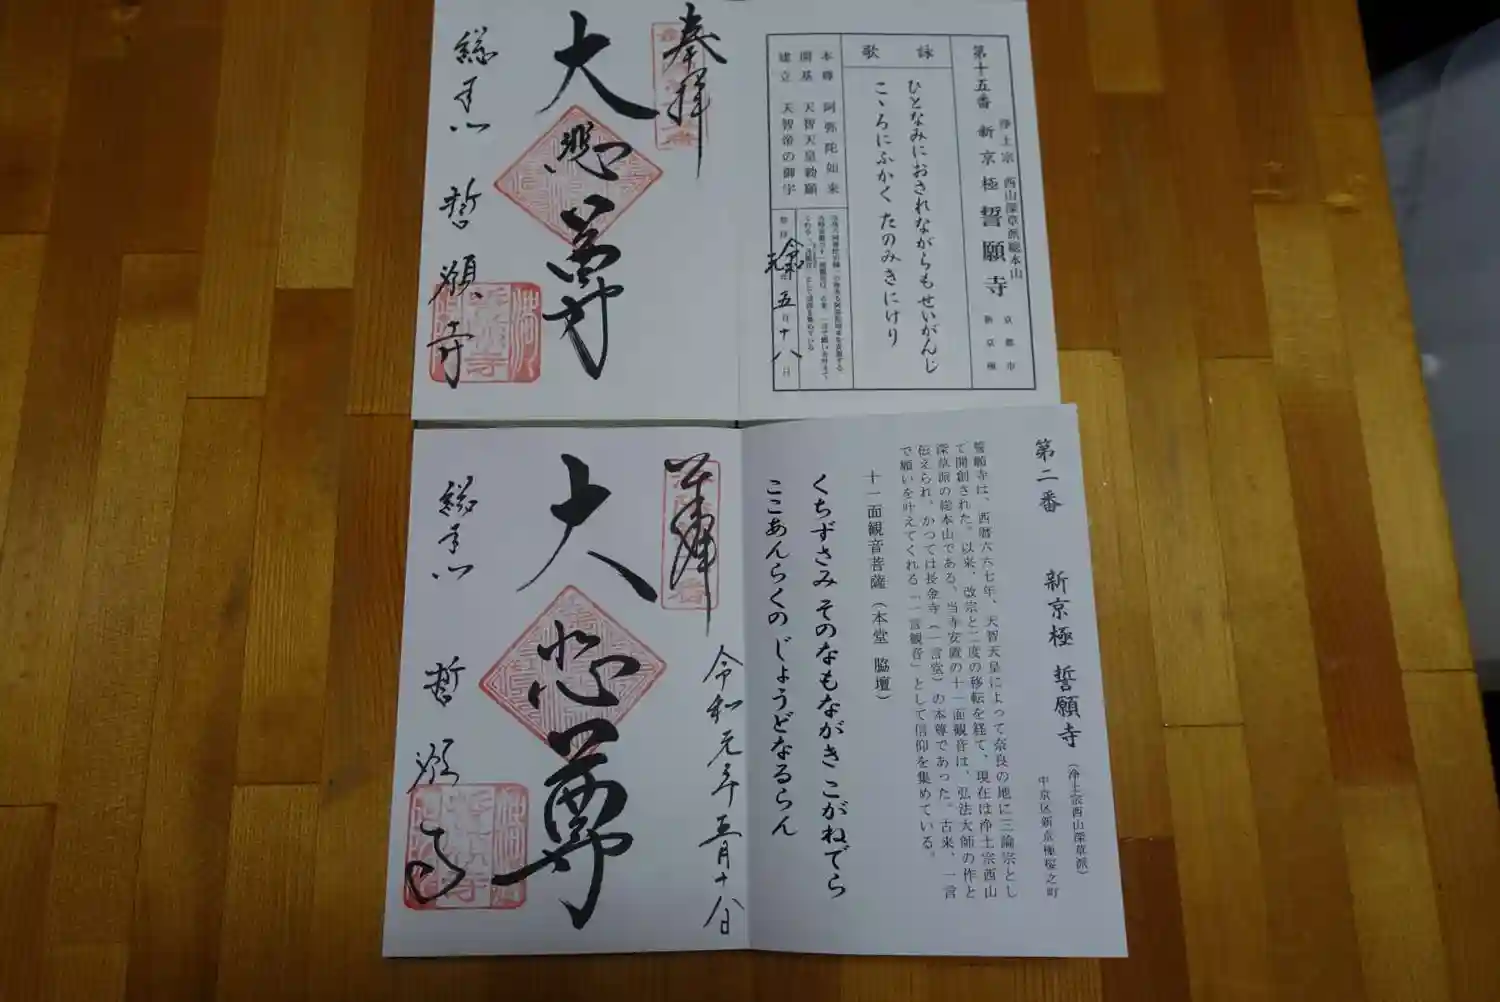 第十五番 新京極 誓願寺
浄土宗 西山深草派総本山
京都市
新京極
詠歌
ひとなみにおされながらもせいがんじ
こゝろにふかく たのみきにけり
本尊 阿弥陀如来
開基 天智天皇勅願
建立 天智帝の御宇
令和元年五月十八日
奉拝
大悲尊
総本山 誓願寺
第二番 新京極 誓願寺
(浄土宗西山深草派)
中京区新京極桜之町
誓願寺は、西暦六六七年、天智天皇によって奈良の地に三論宗とし
て開創された。以来、改宗と二度の移転を経て、現在は浄土宗西山
深草派の総本山である。当寺安置の十一面観音は、弘法大師の作と
伝えられ、かつては長金寺(一言堂)の本尊であった。古来、一言
で願いを叶えてくれる「一言観音」として信仰を集めている。
十一面観音菩薩(本堂 脇壇)
くちずさみ そのなもながき こがねでら
ここあんらくの じょうどなるらん
奉拝
令和元年五月十八日
大悲尊
総本山 誓願寺